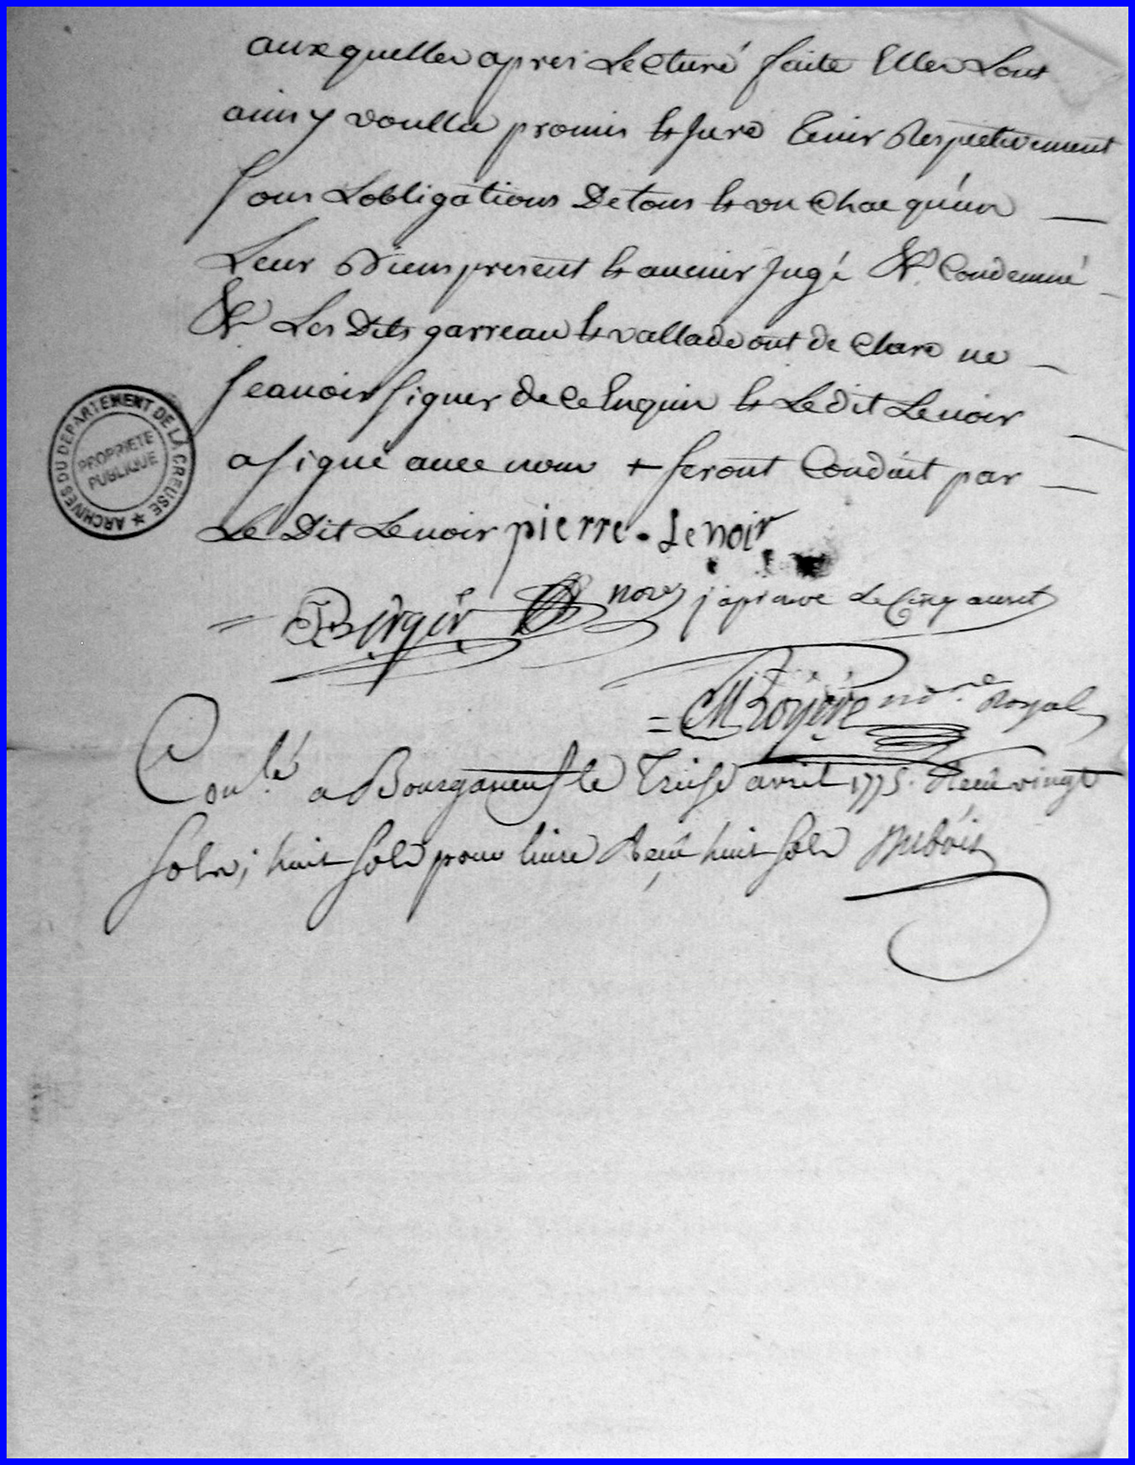 auxquelles apres Lecture faite Elles Lont
ainsy voullu promis & jure tenir Respectivement
sous Lobligations De tous & un Chacq'un
Leur Biens present & avenir jugé & Condemné
& Les Dits garreau & vallade ont de Claré ne
scavoir signer de ce Enquis & Le dit Lenoir
a signé avec nous + seront Conduit par
Le Dit Lenoir pierre. Lenoir
ARCHIVES DU DEPARTEMENT DE LA CREUSE
PROPRIETE PUBLIQUE
= Berger nore japrouve Le
= Royere no.re Royal
Con.lé a Bourganeuf le Treise avril 1775. Receu vingt
sols; huit sols pour livre Receu huit sols Dubois